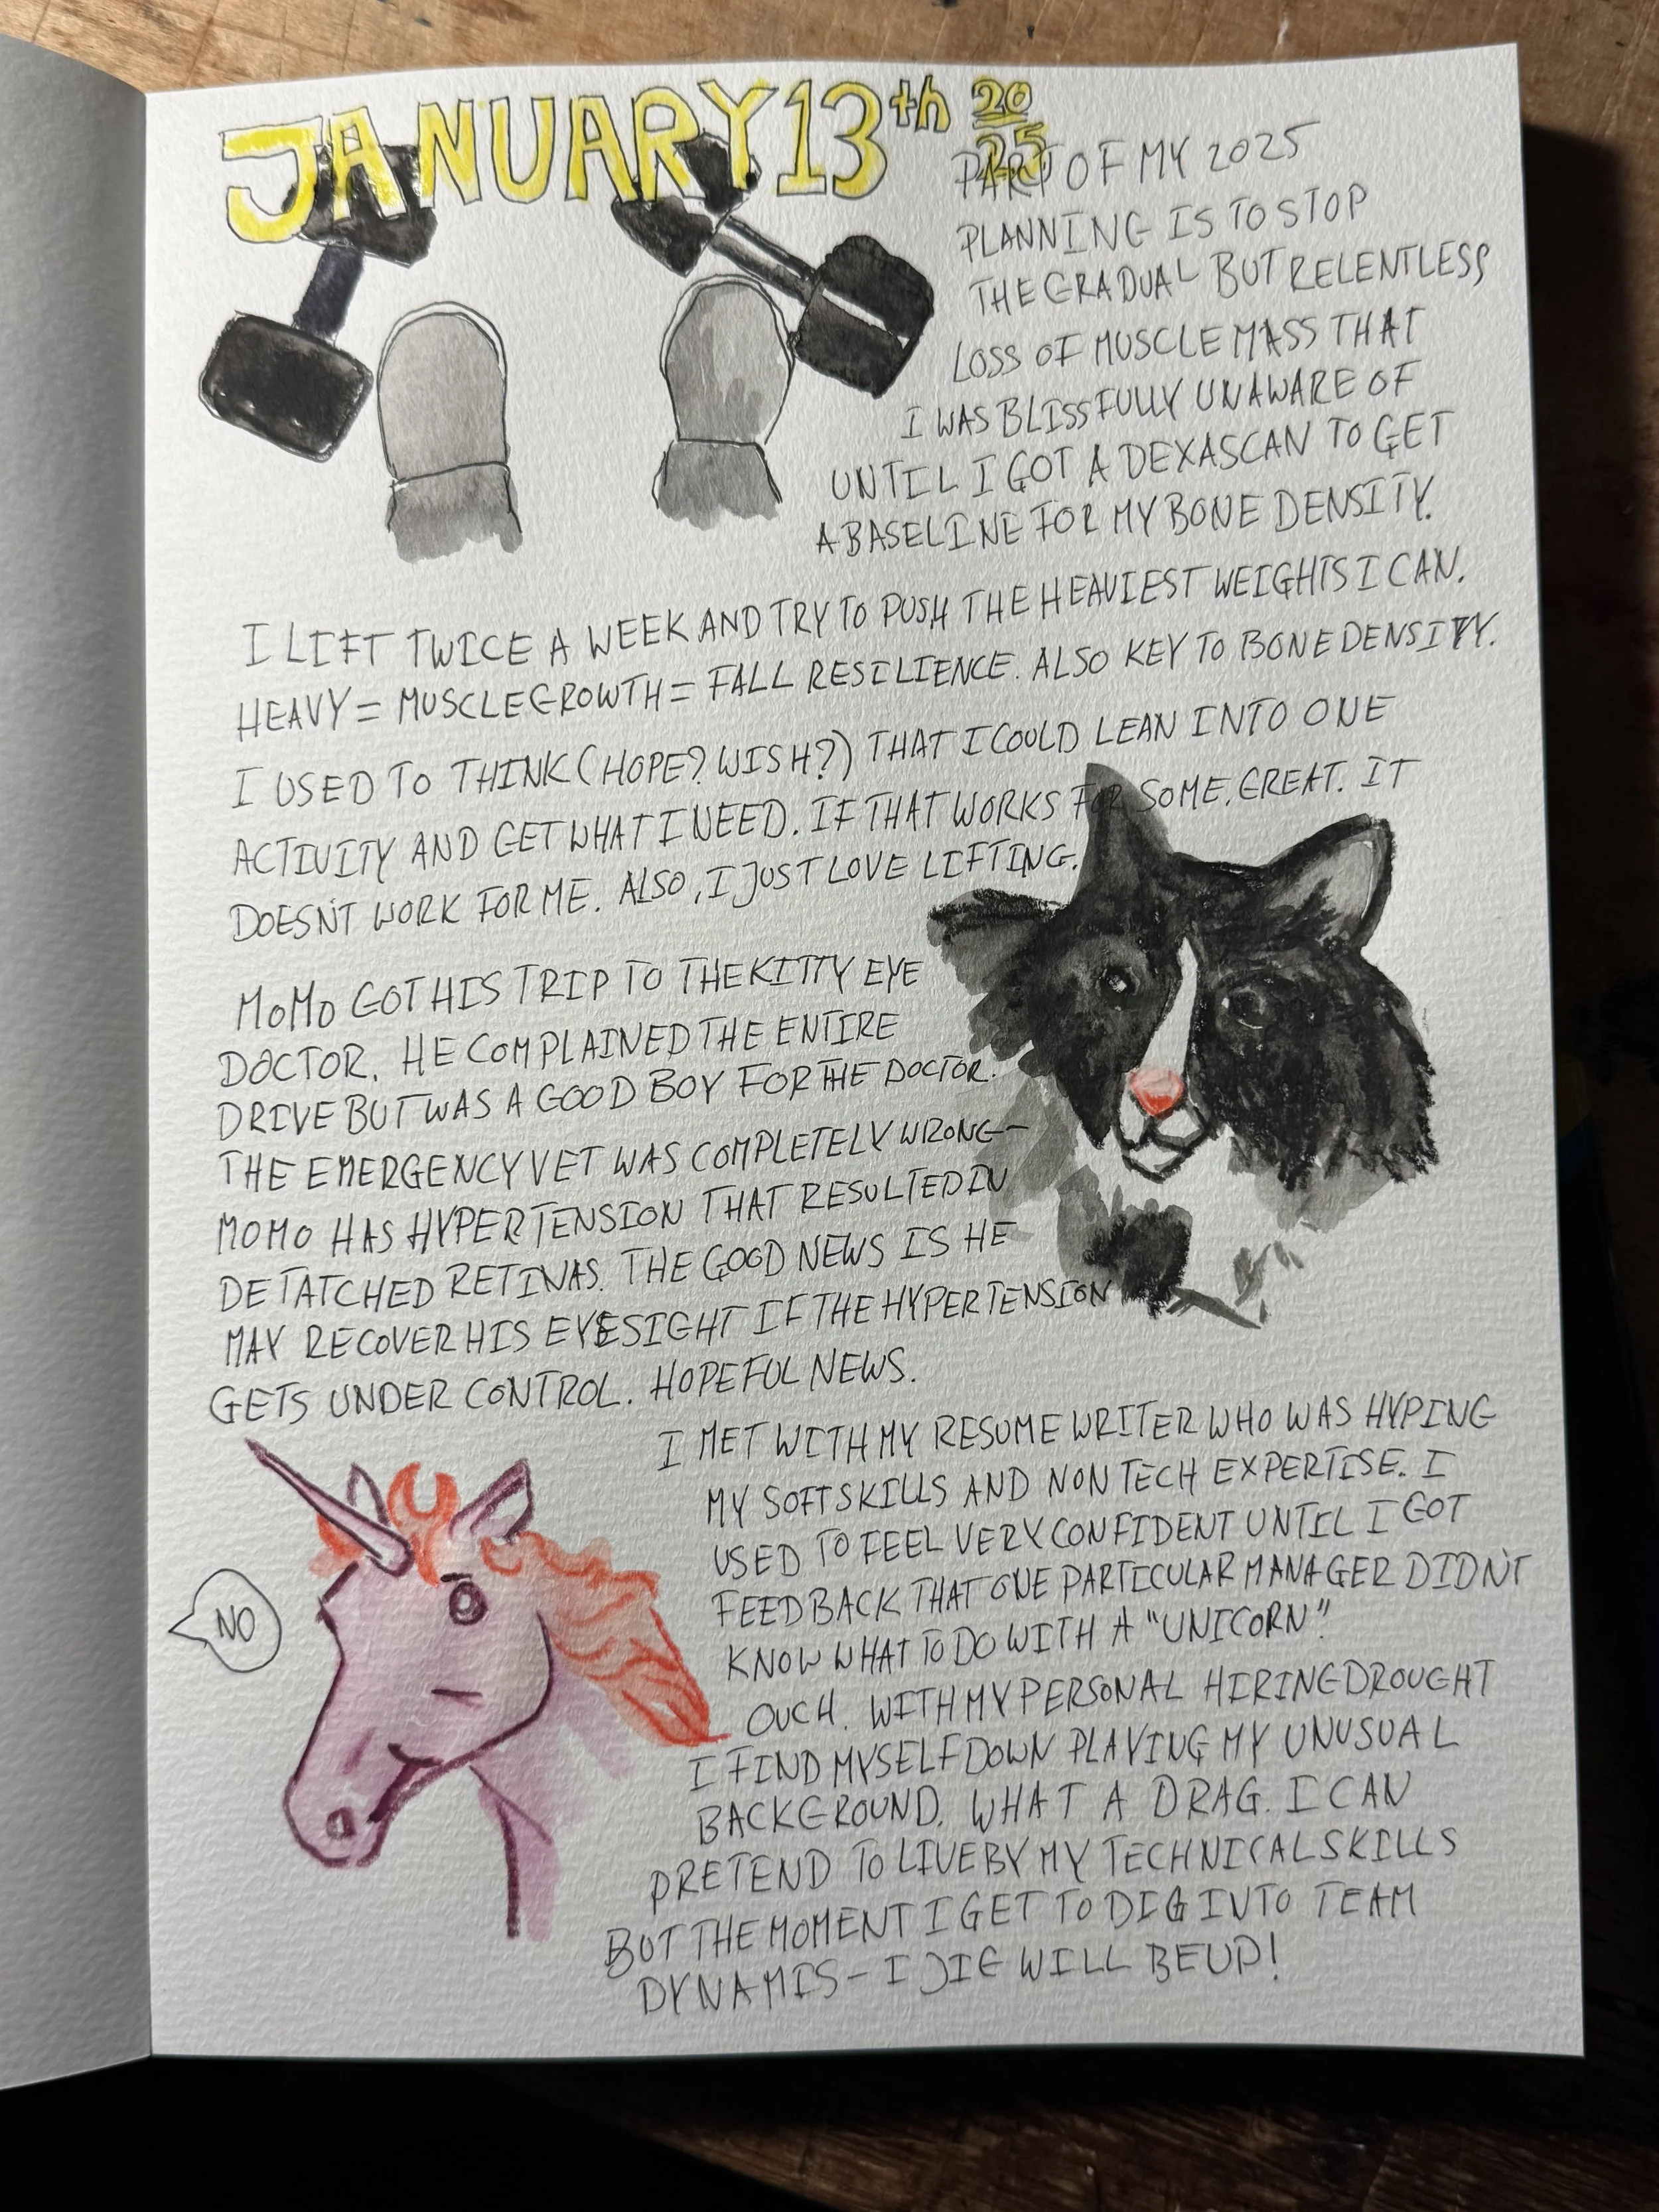 JANUARY 13th 2025
PART OF MY 2025
PLANNING IS TO STOP
THE GRADUAL BUT RELENTLESS
LOSS OF MUSCLE MASS THAT
I WAS BLISSFULLY UNAWARE OF
UNTIL I GOT A DEXASCAN TO GET
A BASELINE FOR MY BONE DENSITY.
I LIFT TWICE A WEEK AND TRY TO PUSH THE HEAVIEST WEIGHTS I CAN.
HEAVY = MUSCLE GROWTH = FALL RESILIENCE. ALSO KEY TO BONE DENSITY.
I USED TO THINK (HOPE? WISH?) THAT I COULD LEAN INTO ONE
ACTIVITY AND GET WHAT I NEED. IF THAT WORKS FOR SOME, GREAT. IT
DOESN'T WORK FOR ME. ALSO, I JUST LOVE LIFTING.
MOMO GOT HIS TRIP TO THE KITTY EYE
DOCTOR. HE COMPLAINED THE ENTIRE
DRIVE BUT WAS A GOOD BOY FOR THE DOCTOR.
THE EMERGENCY VET WAS COMPLETELY WRONG-
MOMO HAS HYPERTENSION THAT RESULTED IN
DETATCHED RETINAS. THE GOOD NEWS IS HE
MAY RECOVER HIS EYESIGHT IF THE HYPERTENSION
GETS UNDER CONTROL. HOPEFUL NEWS.
I MET WITH MY RESUME WRITER WHO WAS HYPING
MY SOFT SKILLS AND NON TECH EXPERTISE. I
USED TO FEEL VERY CONFIDENT UNTIL I GOT
FEEDBACK THAT ONE PARTICULAR MANAGER DIDN'T
KNOW WHAT TO DO WITH A "UNICORN".
NO
OUCH. WITH MY PERSONAL HIRING DROUGHT
I FIND MYSELF DOWN PLAYING MY UNUSUAL
BACKGROUND. WHAT A DRAG. I CAN
PRETEND TO LIVE BY MY TECHNICAL SKILLS
BUT THE MOMENT I GET TO DIG INTO TEAM
DYNAMIS - I JIG WILL BE UP!